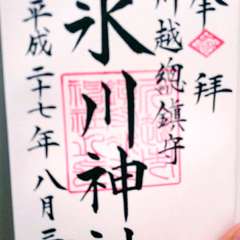 奉拝
川越總鎮守
氷川神社
平成二十七年八月三